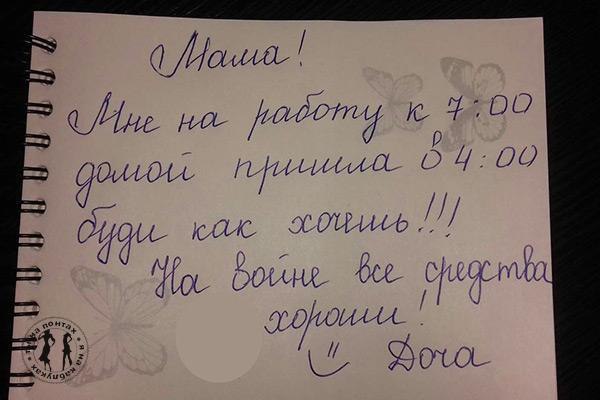 Мама!
Мне на работу к 7:00
домой пришла в 4:00
буди как хочешь!!!
На войне все средства
хороши!
Доча
на понтах • я на каблуках